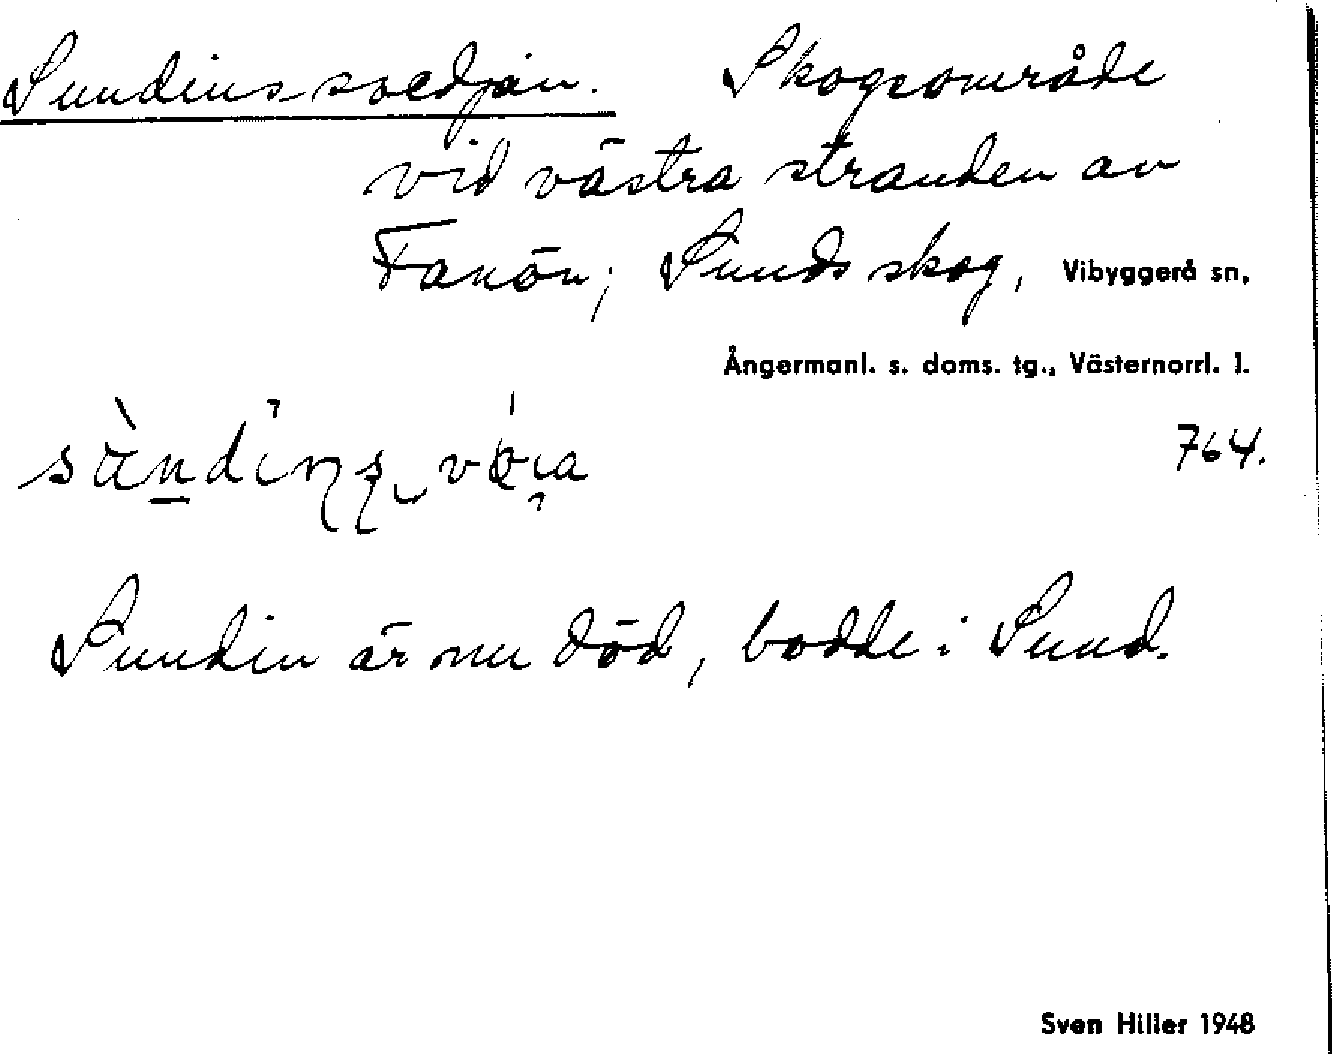 Sundins-svedjan. Skogsområde
vid västra stranden av
Fanön; Sunds skog, Vibyggerå sn,
Ångermanl. s. doms. tg., Västernorrl. l.
764.
Sundin är nu död, bodde i Sund.
Sven Hiller 1948